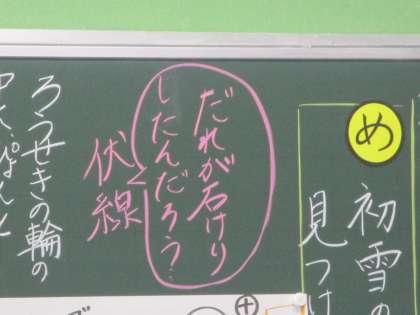 め
初雪の
見つけ
だれが石けり
したんだろう?
伏線
ろうせきの輪の